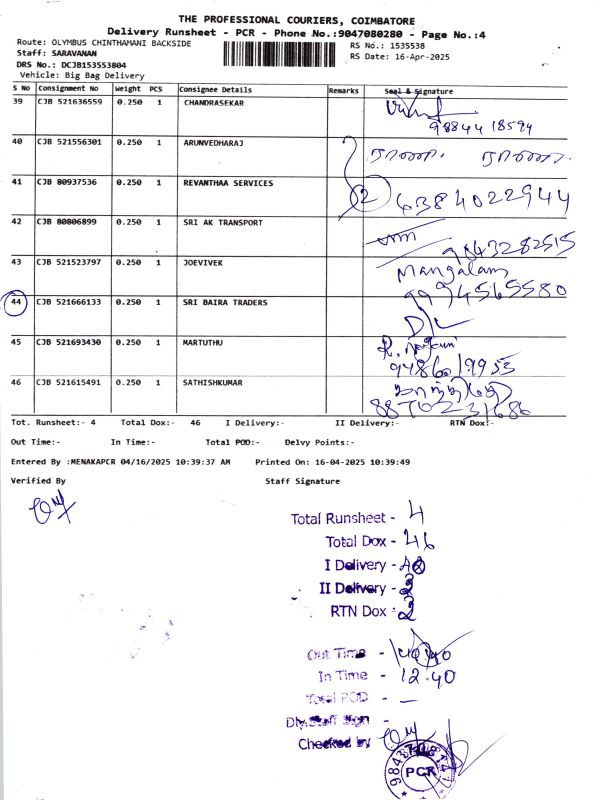 THE PROFESSIONAL COURIERS, COIMBATORE
Delivery Runsheet - PCR - Phone No.:9047080280 - Page No.:4
Route: OLYMBUS CHINTHAMANI BACKSIDE
RS No.: 1535538
Staff: SARAVANAN
RS Date: 16-Apr-2025
DRS No.: DCJB153553804
Vehicle: Big Bag Delivery
S No Consignment No Weight PCS Consignee Details Remarks Seal & Signature
39 CJB 521636559 0.250 1 CHANDRASEKAR
98844 18594
40 CJB 521556301 0.250 1 ARUNVEDHARAJ
41 CJB 80937536 0.250 1 REVANTHAA SERVICES 2 6384022944
42 CJB 80806899 0.250 1 SRI AK TRANSPORT
9843282515
43 CJB 521523797 0.250 1 JOEVIVEK Mangalam
9994565580
44 CJB 521666133 0.250 1 SRI BAIRA TRADERS D/L
45 CJB 521693430 0.250 1 MARTUTHU
9486019953
46 CJB 521615491 0.250 1 SATHISHKUMAR
8870231686
Tot. Runsheet:- 4 Total Dox:- 46 I Delivery:- II Delivery:- RTN Dox:-
Out Time:- In Time:- Total POD:- Delvy Points:-
Entered By :MENAKAPCR 04/16/2025 10:39:37 AM Printed On: 16-04-2025 10:39:49
Verified By Staff Signature
Total Runsheet - 4
Total Dox - 46
I Delivery -
II Delivery - 2
RTN Dox : 2
Out Time -
In Time - 12.40
Total POD - —
Dly.Staff Sign -
Checked by
PCR